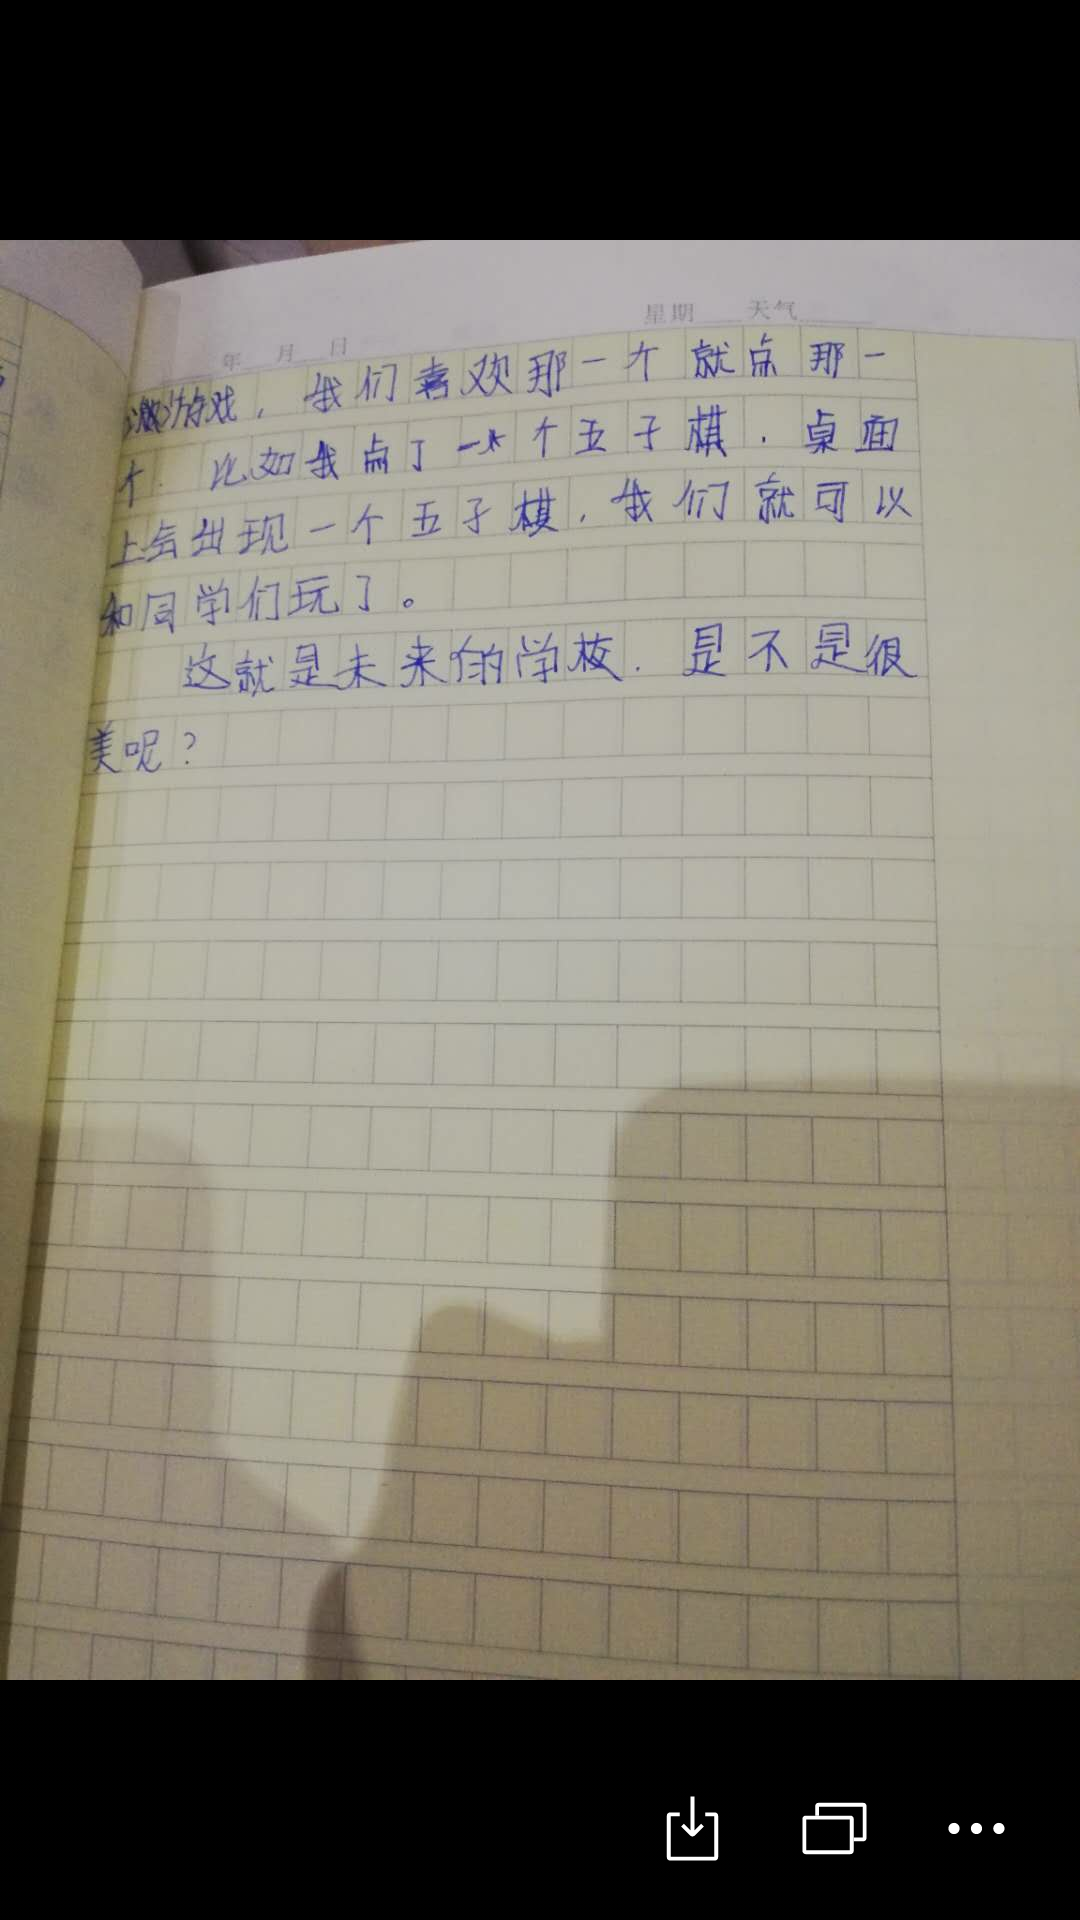 星期 天气
年 月 日
游戏，我们喜欢那一个就点那一
个.比如我点了一个五子棋.桌面
上会出现一个五子棋.我们就可以
和同学们玩了。
这就是未来的学校.是不是很
美呢？